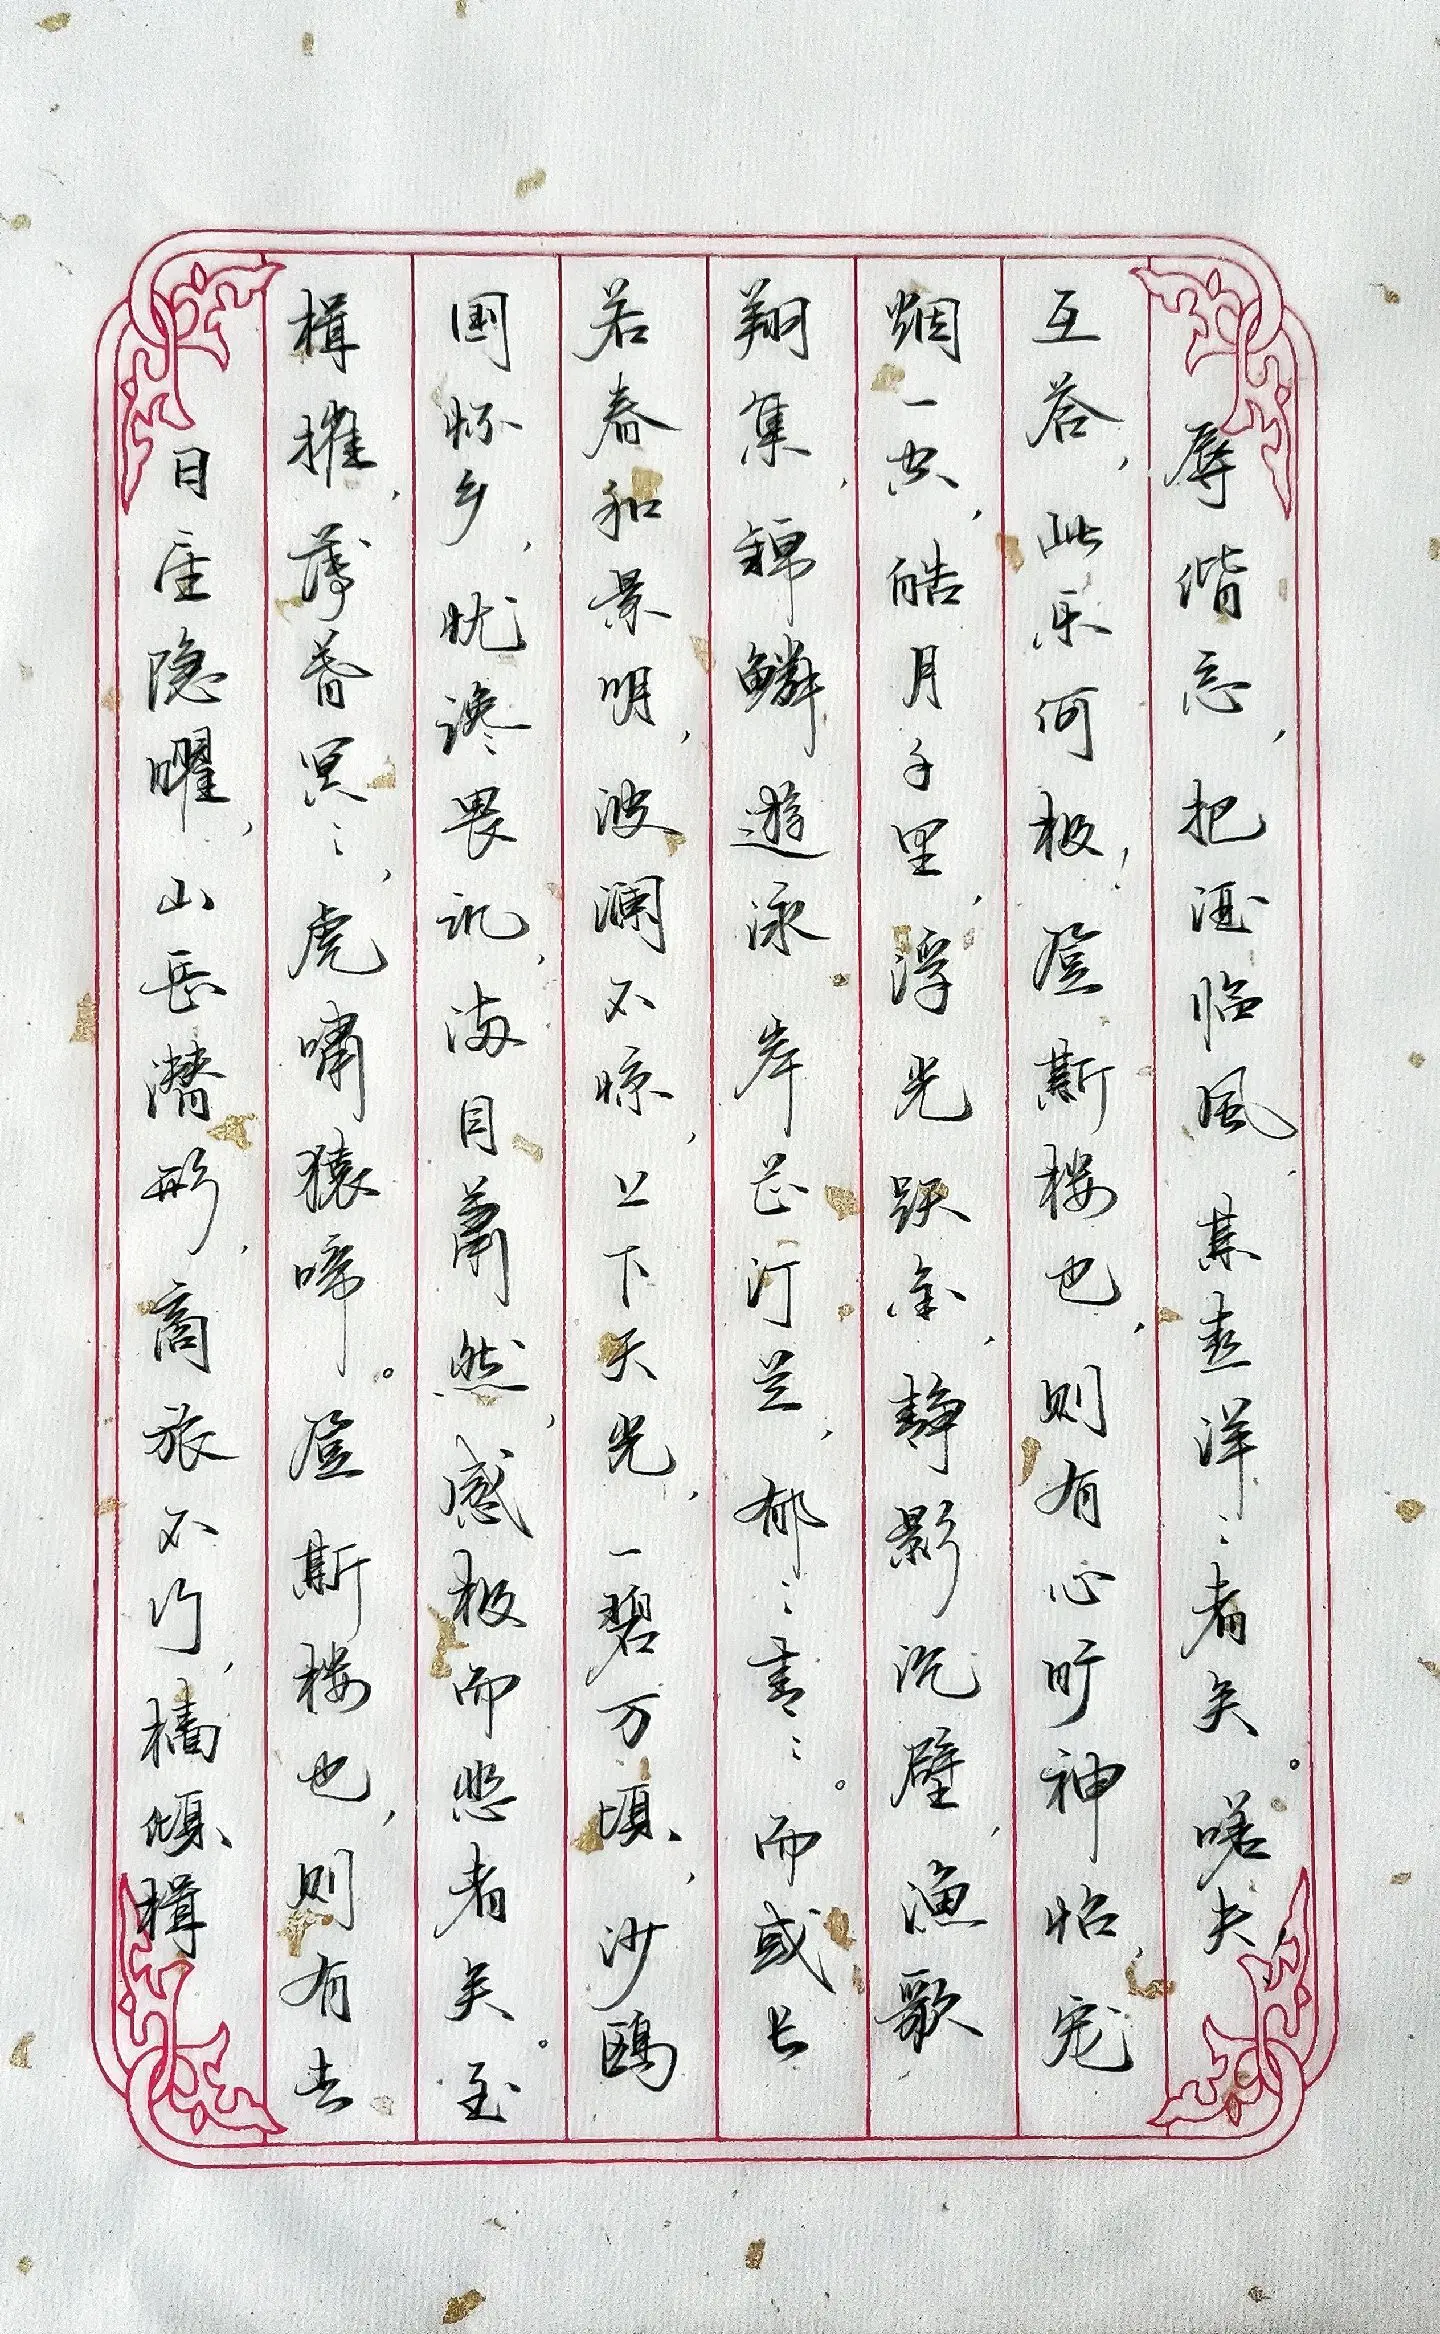 日星隐曜，山岳潜形，商旅不行，樯倾楫
楫摧，薄暮冥〻，虎啸猿啼。登斯楼也，则有去
国怀乡，忧谗畏讥，满目萧然，感极而悲者矣。至
若春和景明，波澜不惊，上下天光，一碧万顷，沙鸥
翔集，锦鳞遊泳，岸芷汀兰，郁〻青〻。而或长
烟一空，皓月千里，浮光跃金，静影沉璧，渔歌
互答，此乐何极！登斯楼也，则有心旷神怡，宠
辱偕忘，把酒临風，其喜洋〻者矣。嗟夫，